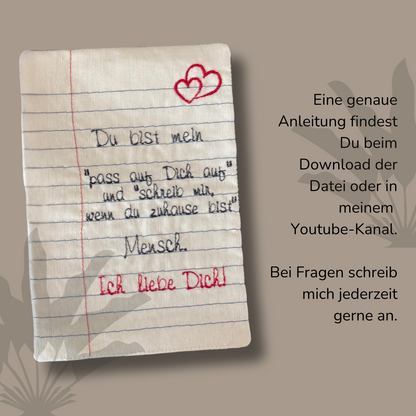 Du bist mein
"pass auf Dich auf"
und "schreib mir,
wenn du zuhause bist"
Mensch.
Ich liebe Dich!
Eine genaue
Anleitung findest
Du beim
Download der
Datei oder in
meinem
Youtube-Kanal.
Bei Fragen schreib
mich jederzeit
gerne an.